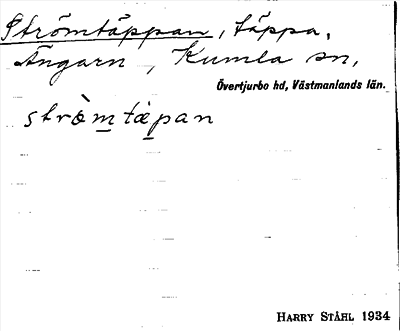 Strömtäppan, täppa.
Ängarn, Kumla sn,
Övertjurbo hd, Västmanlands län.
strò̀m̲ tä̲pan
HARRY STÅHL 1934